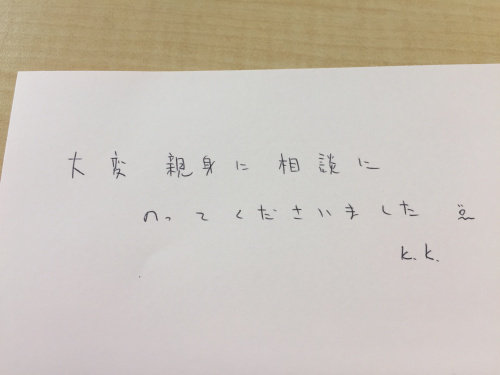 大変 親身に 相談に
のってくださいました
K.K.